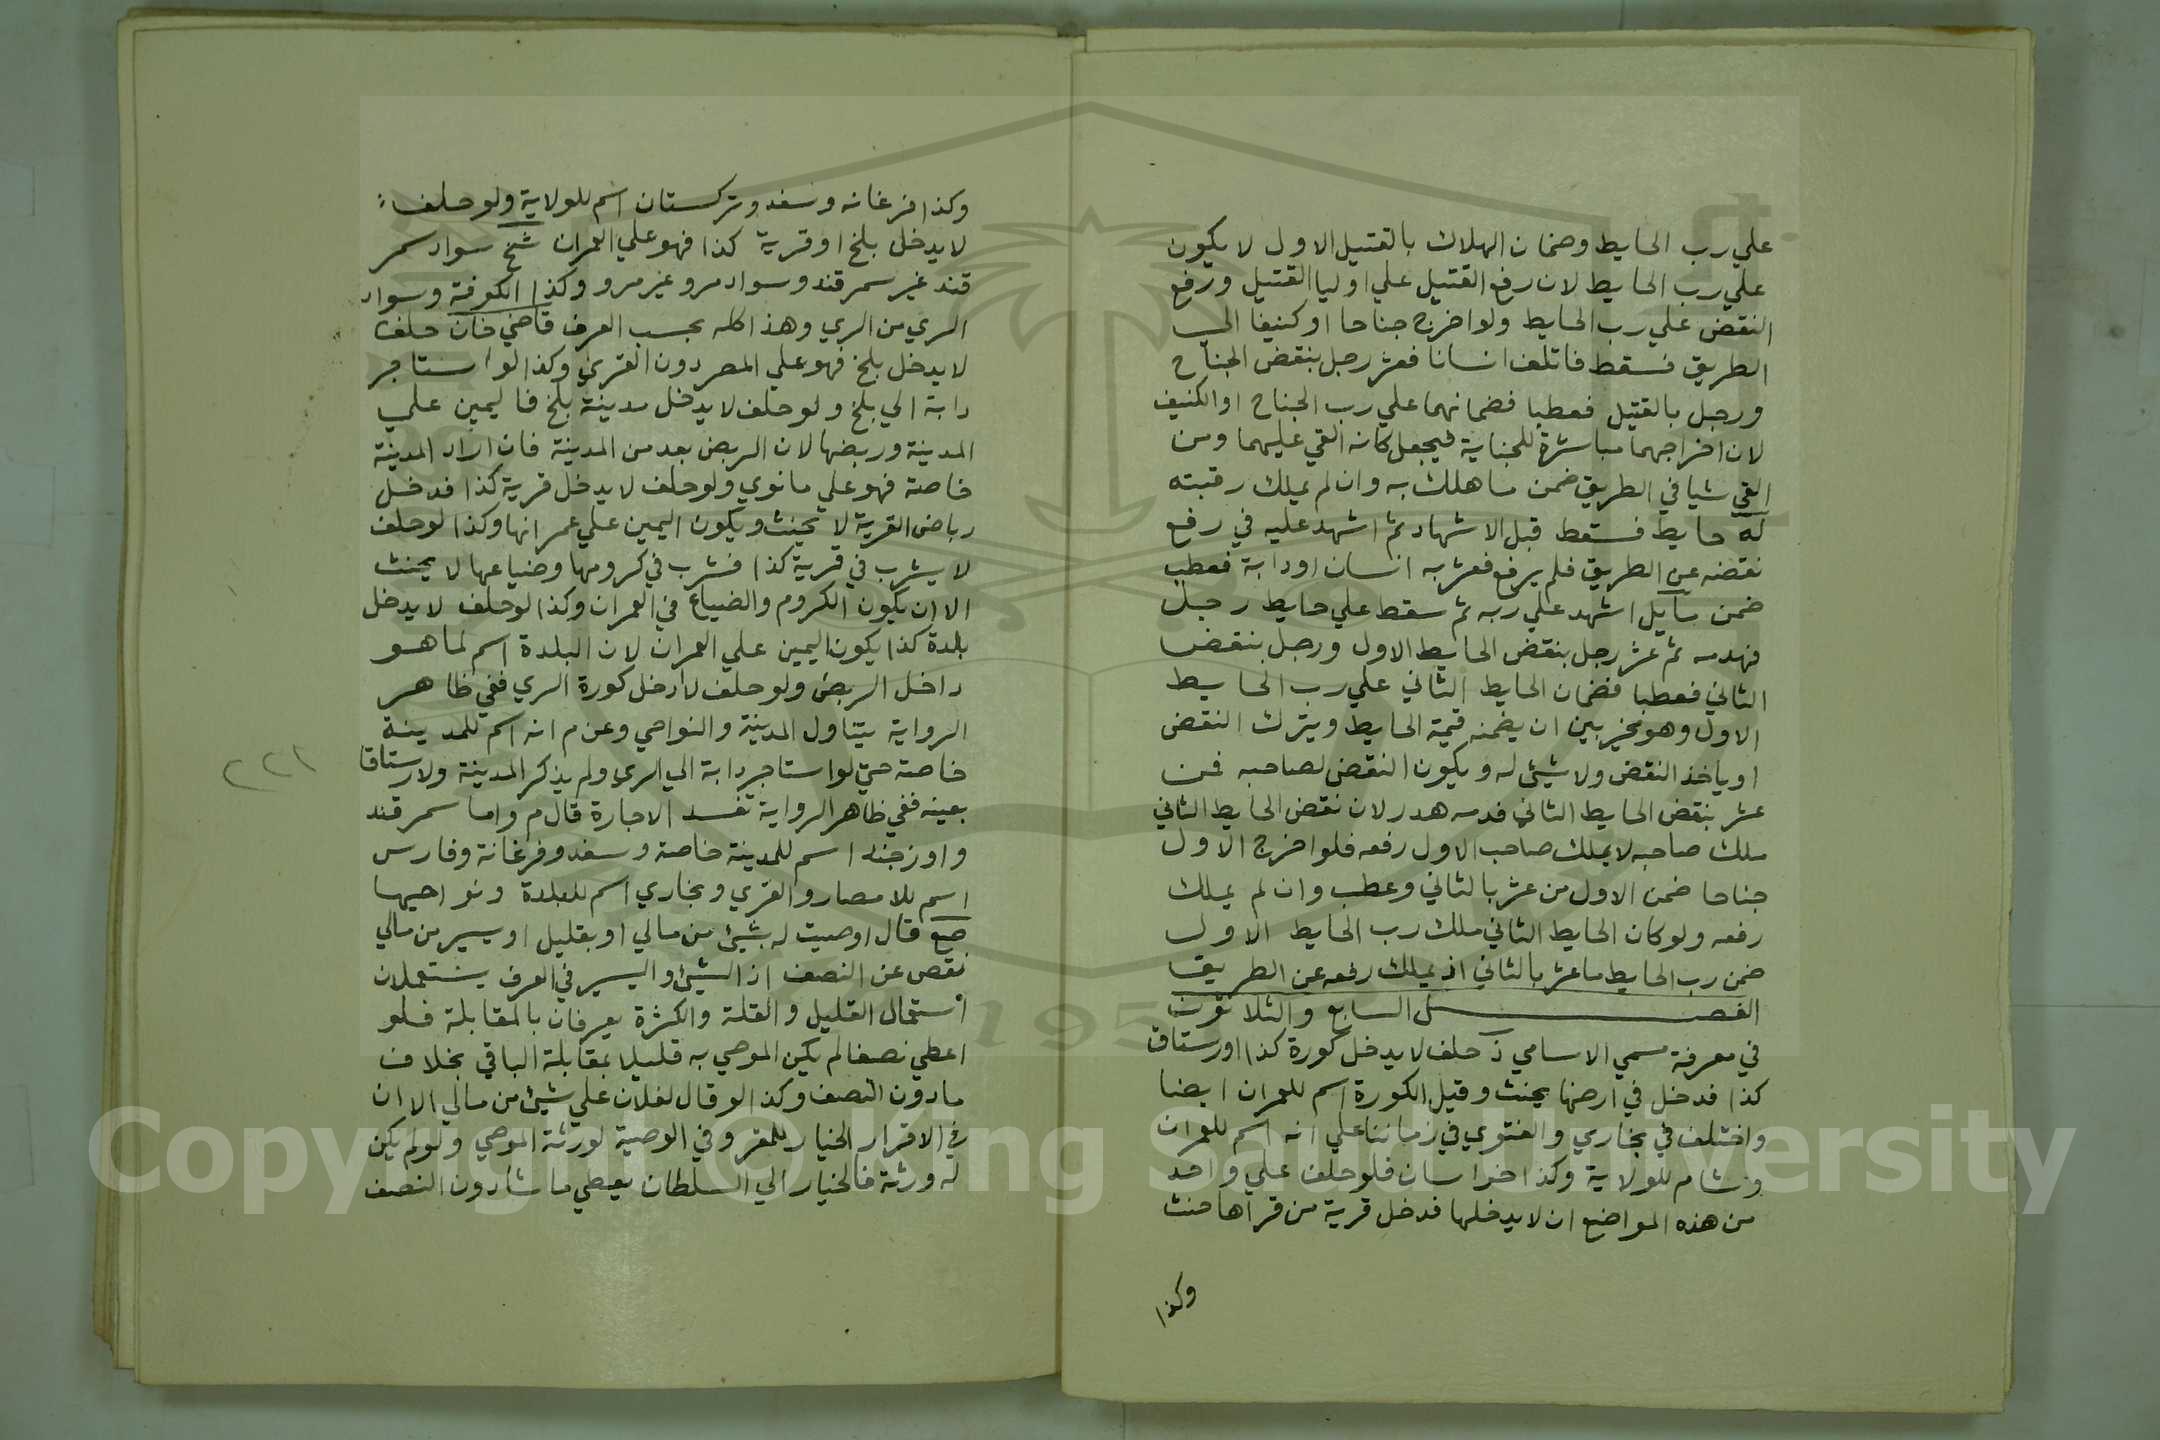 علي رب الحايط وضمان الهلاك بالقتيل الاول لا يكون
علي رب الحايط لان رفع القتيل علي اوليا القتيل ورفع
النقض علي رب الحايط ولو اخرج جناحا او كنيفا الي
الطريق فسقط فاتلف انسانا فعثر رجل بنقض الجناح
ورجل بالقتيل فعطبا فضمانهما علي رب الجناح او الكنيف
لان اخراجهما مباشرة للجناية فيجعل كانه القي عليهما ومن
القي شيا في الطريق ضمن ما هلك به وان لم يملك رقبته
له حايط فسقط قبل الاشهاد ثم اشهد عليه في رفع
نقضه عن الطريق فلم يرفع فعثر به انسان او دابة فعطب
ضمن مايل اشهد علي ربه ثم سقط علي حايط رجل
فهدمه ثم عثر رجل بنقض الحايط الاول ورجل بنقض
الثاني فعطبا فضمان الحايط الثاني علي رب الحايط
الاول وهو مخير بين ان يضمنه قيمة الحايط ويترك النقض
او ياخذ النقض ولا شيئ له ويكون النقض لصاحبه فمن
عثر بنقض الحايط الثاني فدمه هدر لان نقض الحايط الثاني
ملك صاحبه لا يملك صاحب الاول رفعه فلو اخرج الاول
جناحا ضمن الاول من عثر بالثاني وعطب وان لم يملك
رفعه ولو كان الحايط الثاني ملك رب الحايط الاول
ضمن رب الحايط ما عثر بالثاني اذ يملك رفعه عن الطريق
الفصل السابع والثلاثون
في معرفة مسمي الاسامي ذ حلف لا يدخل كورة كذا او رستاق
كذا فدخل في ارضها يحنث وقيل الكورة اسم للعمران ايضا
واختلف في بخاري والفتوي في زماننا علي انه اسم للعمران
وشام للولاية وكذا خراسان فلو حلف علي واحد
من هذه المواضع ان لا يدخلها فدخل قرية من قراها حنث
وكذا
وكذا فرغانه وسغد وتركستان اسم للولاية ولو حلف
لا يدخل بلخ او قرية كذا فهو علي العمران شخ سواد سمر
قند غير سمرقند وسواد مرو غير مرو وكذا الكوفة وسواد
الري من الري وهذا كله بحسب العرف قاضي خان حلف
لا يدخل بلخ فهو علي المصر دون القري وكذا لو استاجر
دابة الي بلخ ولو حلف لا يدخل مدينة بلخ فاليمين علي
المدينة وربضها لان الربض يعد من المدينة فان اراد المدينة
خاصة فهو علي ما نوي ولو حلف لا يدخل قرية كذا فدخل
رباض القرية لا يحنث ويكون اليمين علي عمرانها وكذا لو حلف
لا يشرب في قرية كذا فشرب في كرومها وضياعها لا يحنث
الا ان يكون الكروم والضياع في العمران وكذا لو حلف لا يدخل
بلدة كذا يكون اليمين علي العمران لان البلدة اسم لما هو
داخل الربض ولو حلف لا ادخل كورة الري ففي ظاهر
الرواية يتناول المدينة والنواحي وعن م انه اسم للمدينة
خاصة حتي لو استاجر دابة الي الري ولم يذكر المدينة ولا رستاقا
بعينه ففي ظاهر الرواية تفسد الاجارة قال م واما سمرقند
واوزجند اسم للمدينة خاصة وسغد وفرغانة وفارس
اسم للامصار والقري وبخاري اسم للبلدة ونواحيها
صع قال اوصيت له بشيئ من مالي او بقليل او يسير من مالي
نقص عن النصف اذ الشيئ واليسير في العرف يستعملان
استعمال القليل والقلة والكثرة يعرفان بالمقابلة فلو
اعطي نصفا لم يكن الموصي به قليلا بمقابلة الباقي بخلاف
مادون النصف وكذا لو قال لفلان علي شيئ من مالي الا ان
في الاقرار الخيار للمقر وفي الوصية لورثة الموصي ولو لم يكن
له ورثة فالخيار الي السلطان يعطي ما شا دون النصف
٢٢١
1957
Copyright © King Saud University